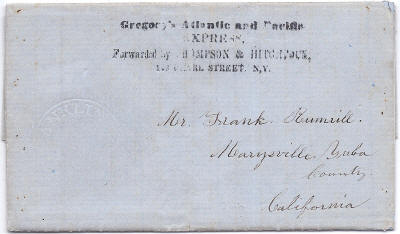 Gregory's Atlantic and Pacific
EXPRESS,
Forwarded by THOMPSON & HITCHCOCK,
PEARL STREET, N.Y.
Mr. Frank Rumrill.
Marysville Yuba
County
California